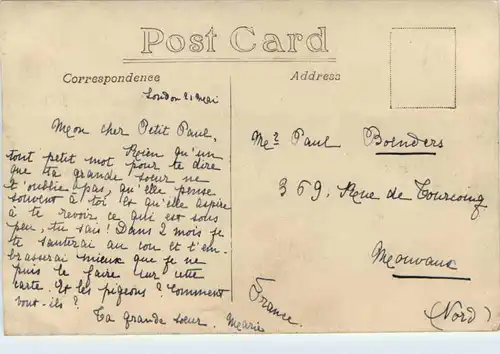 Post Card
Correspondence
Address
London 21 Mai
Mon cher Petit Paul,
Rien qu'un
tout petit mot pour te dire
que ta grande soeur ne
t'oublie pas, qu'elle pense
souvent à toi et qu'elle aspire
à te revoir ce qui est sous
peu, tu sais! Dans 2 mois je
te sauterai au cou et t'em-
brasserai mieux que je ne
puis le faire sur cette
carte. Et les pigeons? Comment
vont-ils?
Ta grande soeur. Marie
Mr Paul Boenders
369. Rue de Tourcoing
Mouvaux
(Nord)
France.